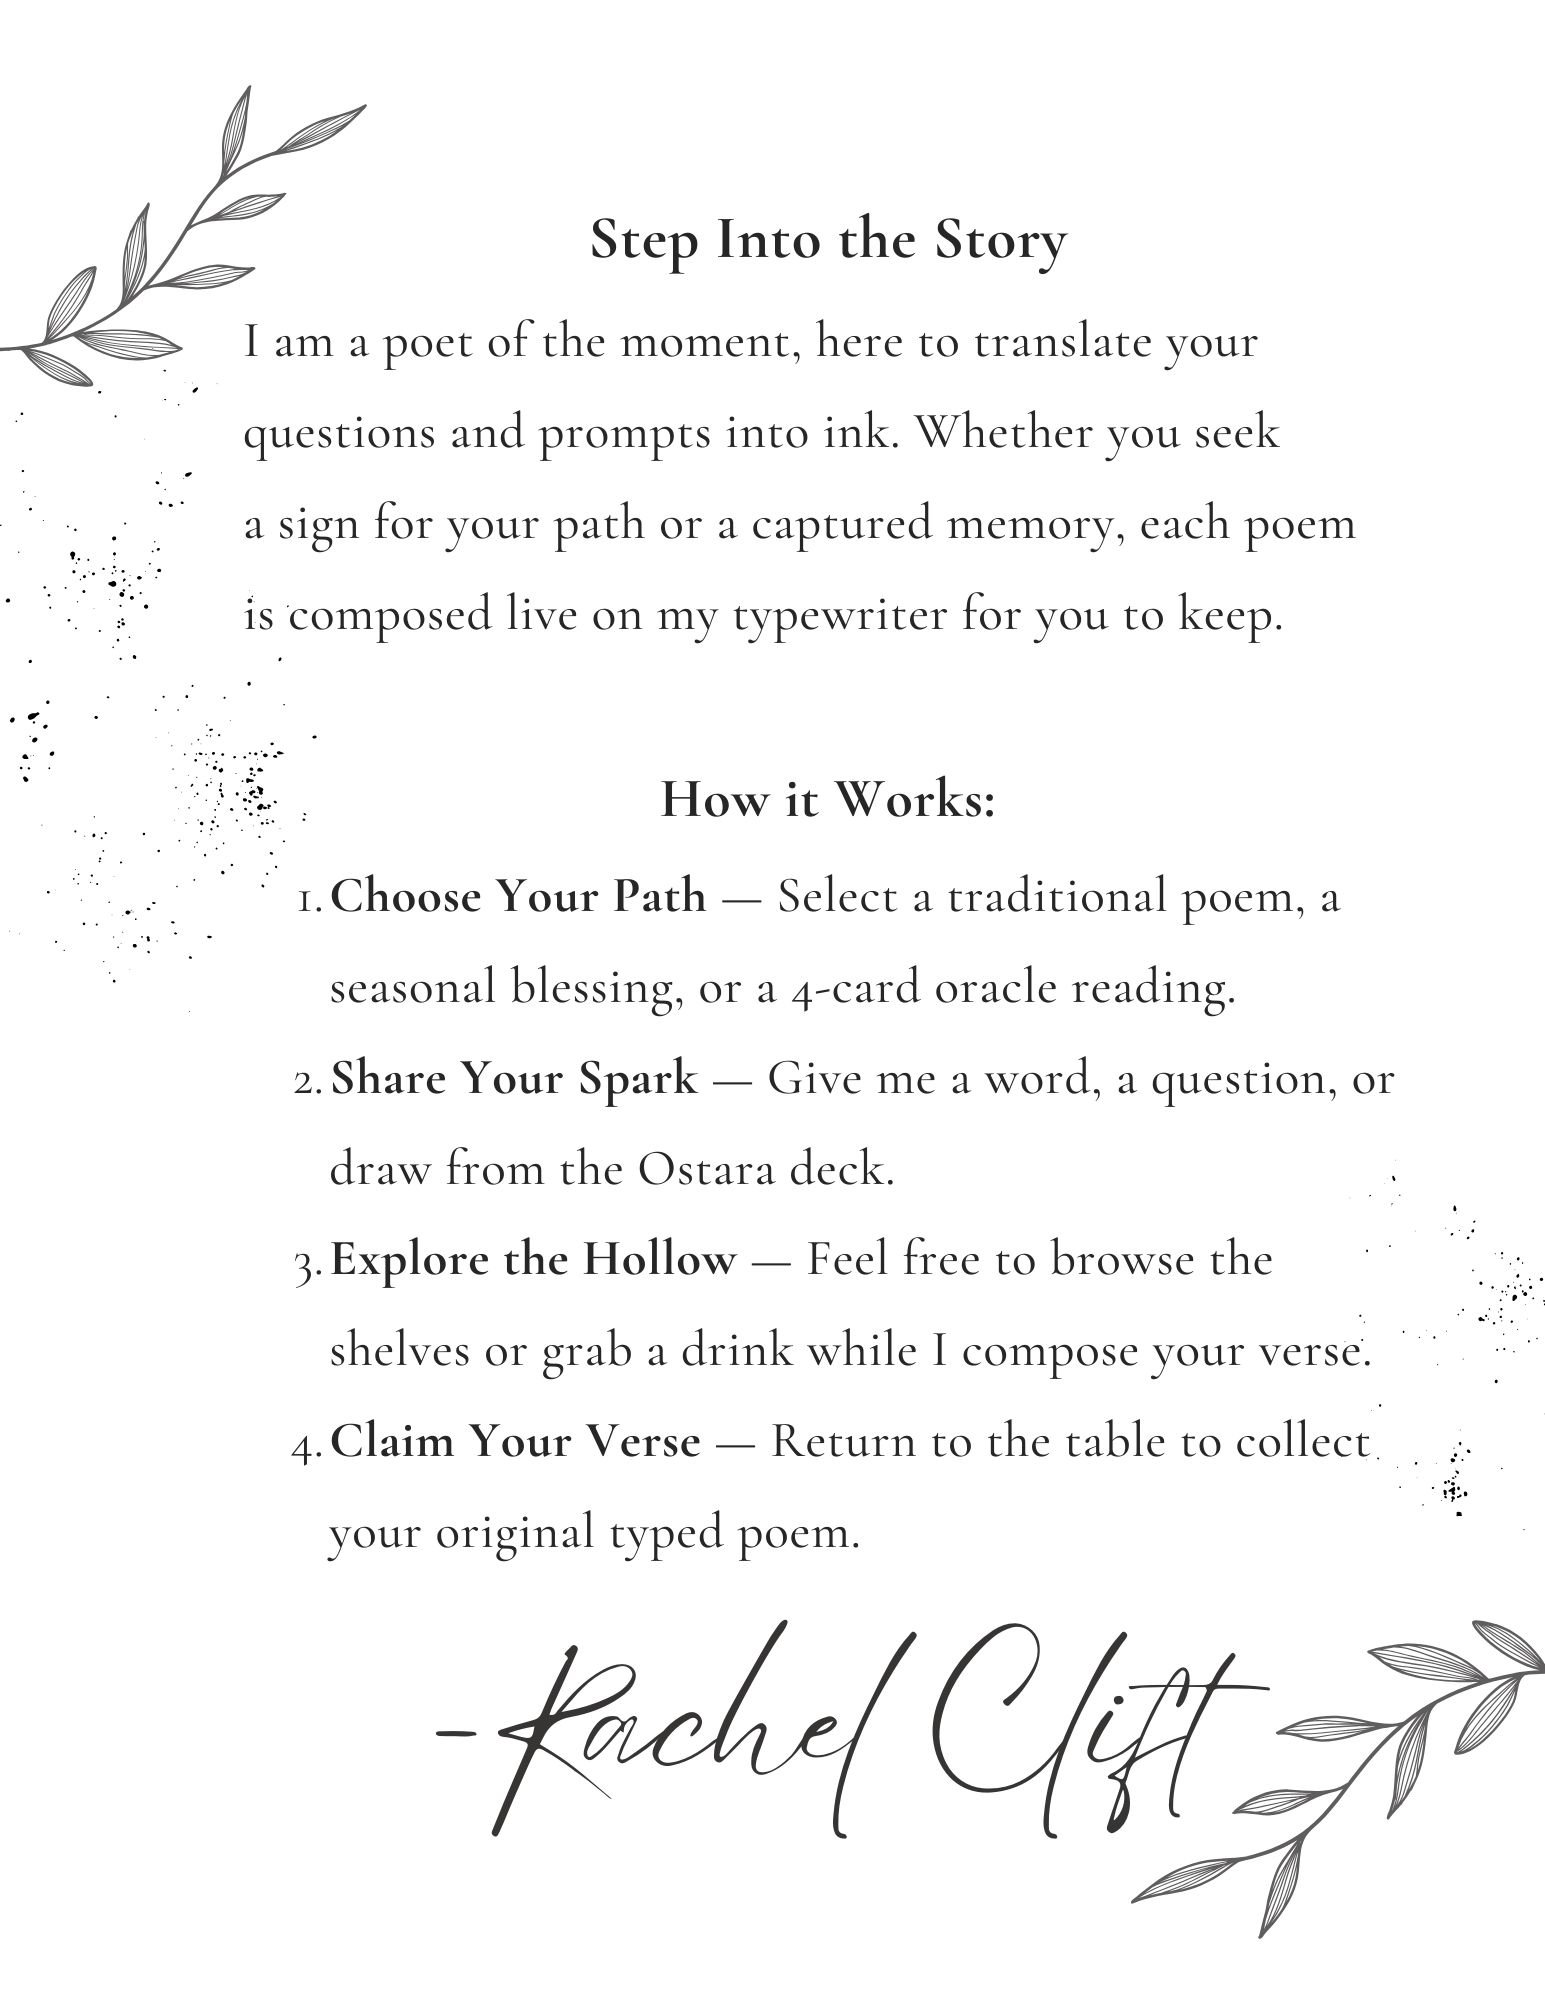 Step Into the Story
I am a poet of the moment, here to translate your
questions and prompts into ink. Whether you seek
a sign for your path or a captured memory, each poem
is composed live on my typewriter for you to keep.
How it Works:
1. Choose Your Path — Select a traditional poem, a
seasonal blessing, or a 4-card oracle reading.
2. Share Your Spark — Give me a word, a question, or
draw from the Ostara deck.
3. Explore the Hollow — Feel free to browse the
shelves or grab a drink while I compose your verse.
4. Claim Your Verse — Return to the table to collect
your original typed poem.
-Rachel Clift